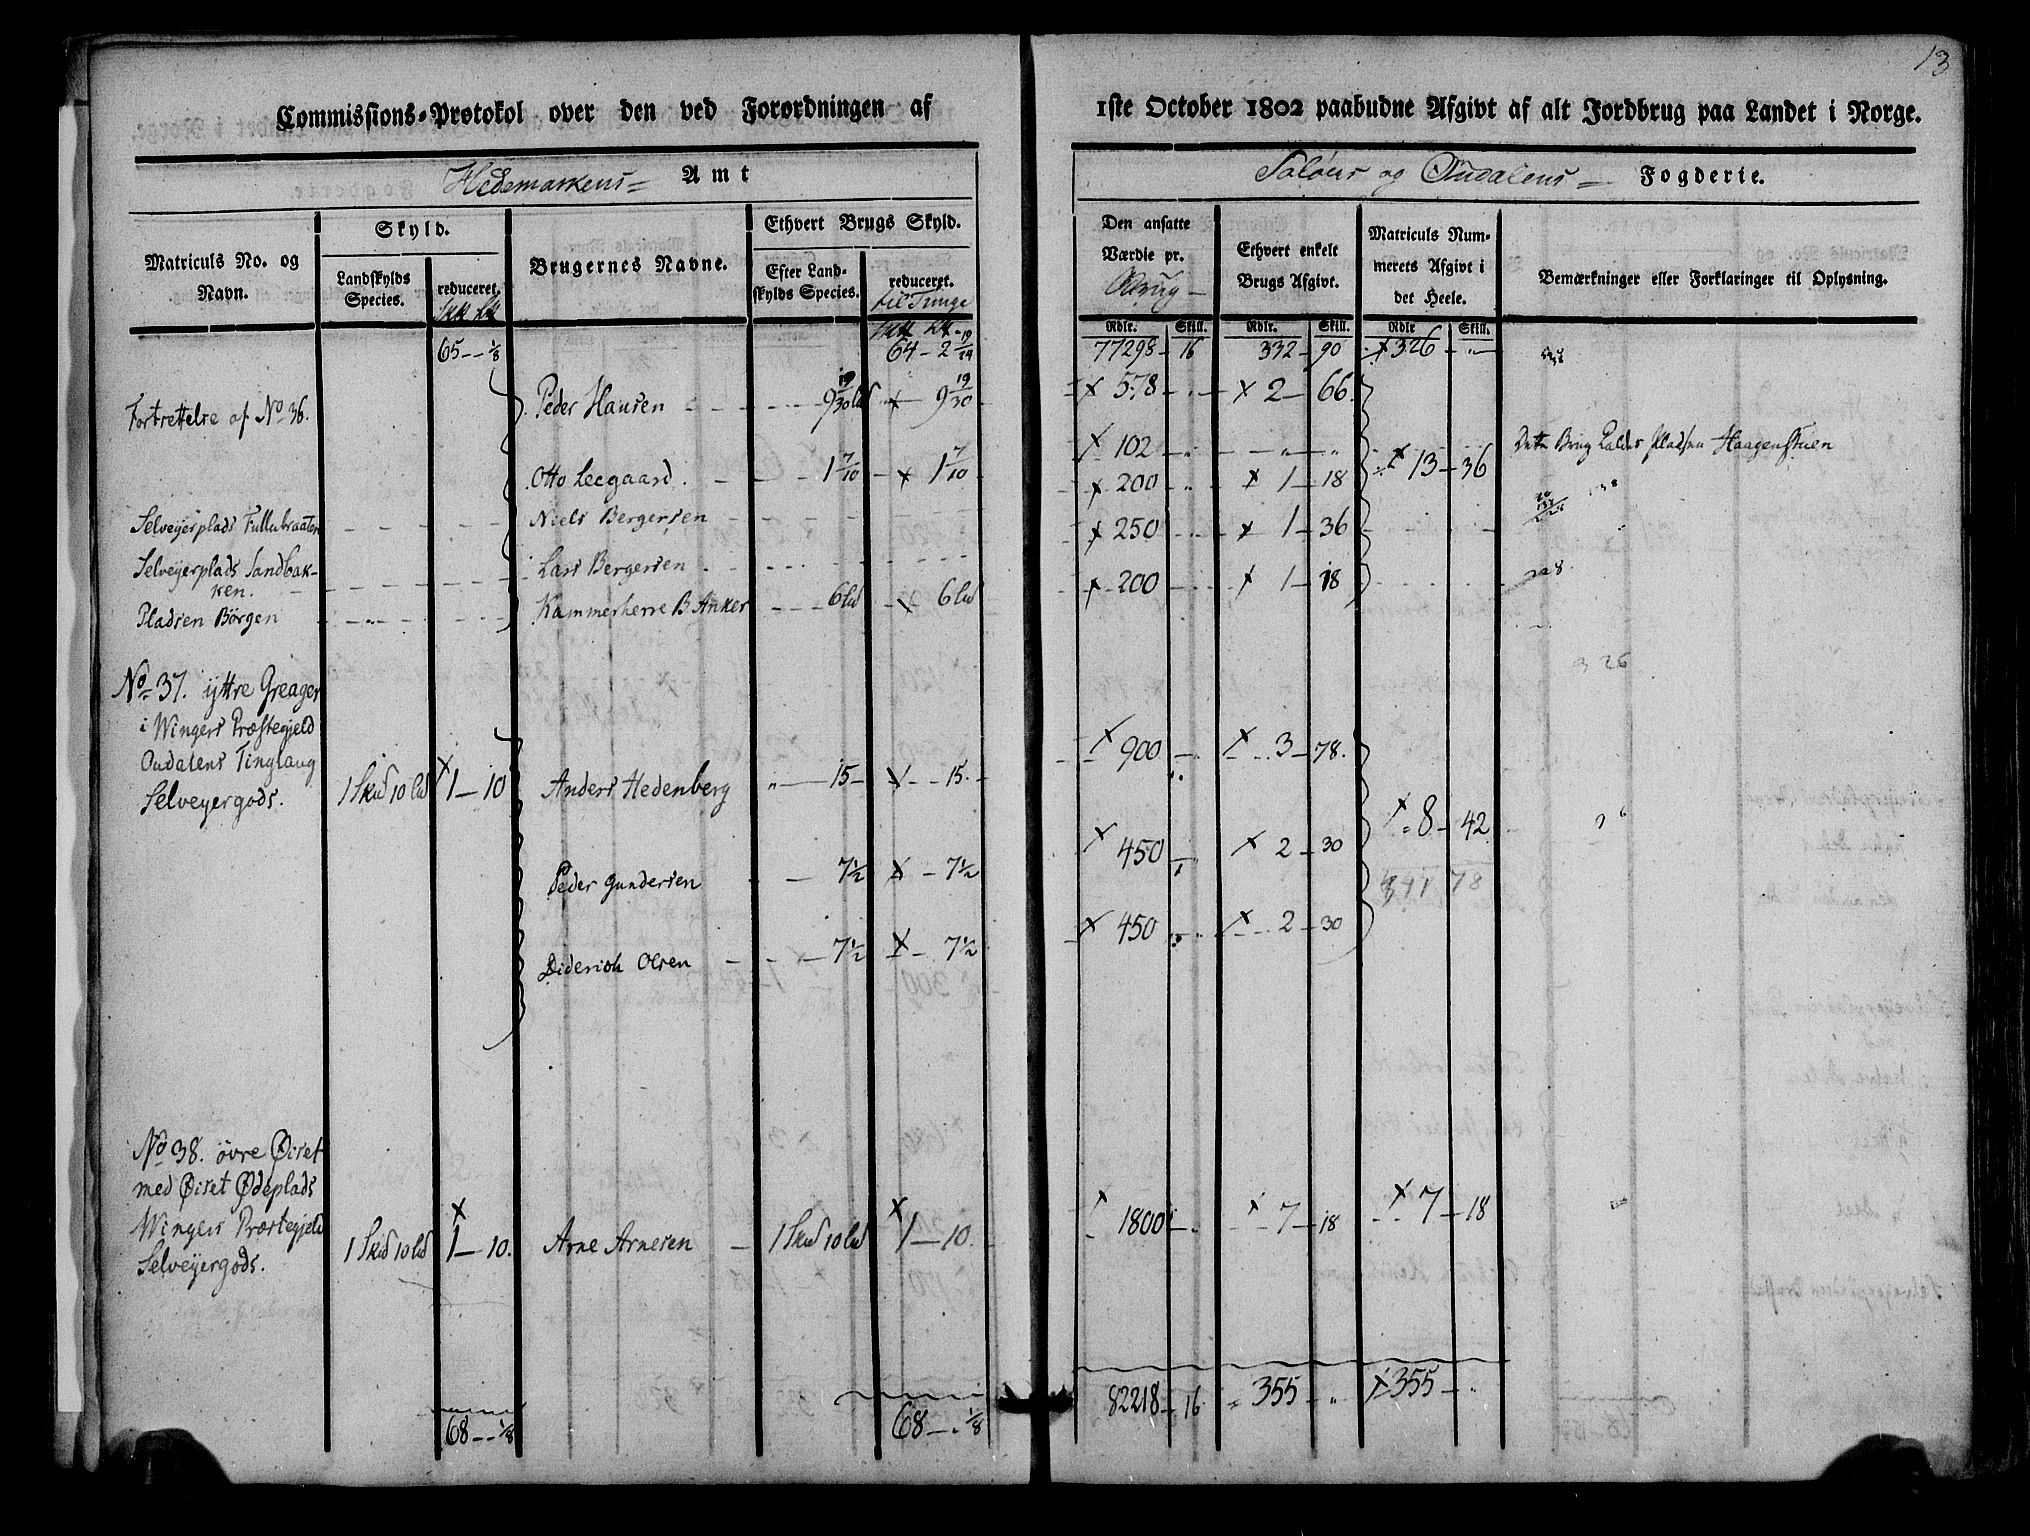 13
Commissions-Protokol over den ved Forordningen af 1ste October 1802 paabudne Afgivt af alt Jordbrug paa Landet i Norge.
Hedemarkens Amt
Soløers og Oudalens Fogderie.
Matriculs No. og Navn.
Skyld.
Landskylds Species.
reduceret.
Brugernes Navne.
Ethvert Brugs Skyld.
Efter Landskylds Species.
reduceret.
til Tunge
Den ansatte Værdie pr. Brug
Ethvert enkelt Brugs Afgivt.
Matriculs Nummerets Afgivt i det Heele.
Bemærkninger eller Forklaringer til Oplysning.
Rdlr. Skill. Rdlr. Skill. Rdlr Skill.
65 - - 1/8 64 - 2 19/24 77298 - 16 332 - 90 x 326 - "
Fortsettelse af No 36. Peder Hansen 9 19/30 lb x 9 19/30 x 578 x 2 - 66
x 102 - " - " Dette Brug kaldes Pladsen Haagenstuen
Otto Leegaard. 1 7/10 x 1 7/10 x 200 x 1 - 18 x 13 - 36
Selveyerplads Fullubraaten Niels Bergersen x 250 x 1 - 36
Selveyerplads Sandbakken. Lars Bergersen x 200 x 1 - 18
Pladsen Börgen Kammerherre B Anker 6 lb x 6 lb
326
No 37. ÿttre Greager
i Wingers Præstegjeld
Oudalens Tinglaug
Selveyergods. 1 Skd 10 lb x 1 - 10 Anders Hedenberg " 15 x 15 x 900 x 3 - 78.
x 8 - 42
Peder Gundersen 7 1/2 x 7 1/2 x 450 x 2 - 30
Diderich Olsen 7 1/2 x 7 1/2 x 450 x 2 - 30
No 38. övre Øiset
med Øiset Ødeplads
Wingers Præstegjeld
Selveyergods. 1 Skd 10 lb x 1 - 10. Arne Arnesen 1 Skd 10 lb x 1 - 10. x 1800 x 7 - 18 x 7 - 18
68 - - 1/8 68 - - 1/8 82218 - 16 355 - " x 355 - "